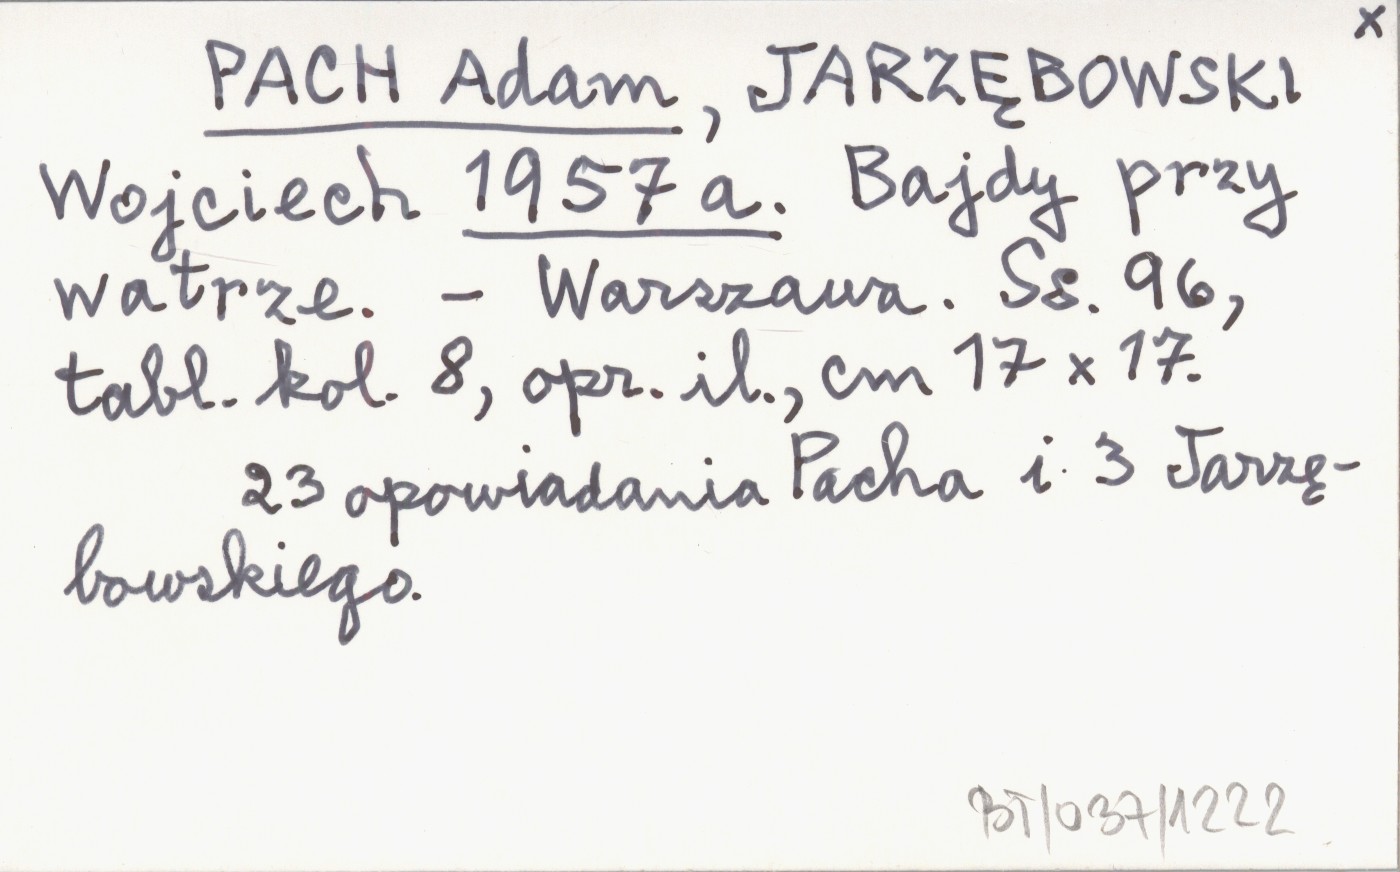 x
PACH Adam, JARZĘBOWSKI
Wojciech 1957 a. Bajdy przy
watrze. - Warszawa. Ss. 96,
tabl. kol. 8, opr. il., cm 17 x 17.
23 opowiadania Pacha i 3 Jarzę-
bowskiego.
BT/037/1222